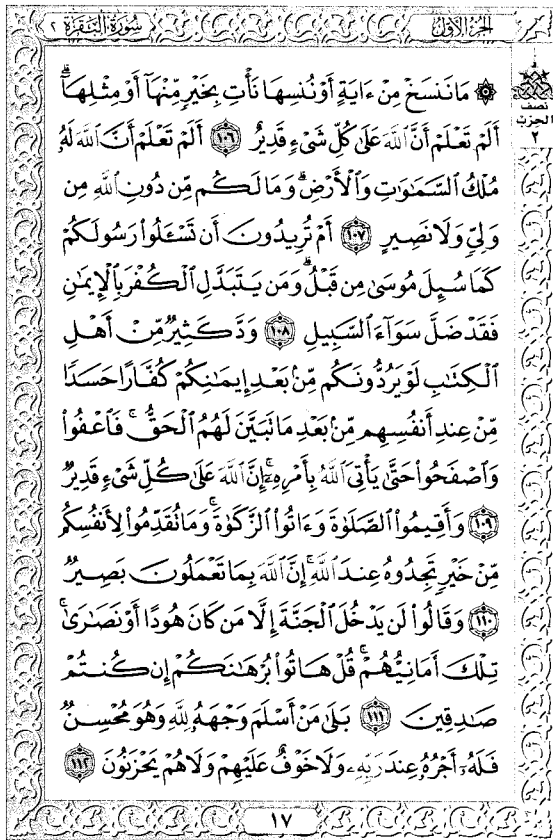 الجزء الأول
سورة البقرة ٢
نصف
الحزب
٢
۞ مَا نَنسَخْ مِنْ ءَايَةٍ أَوْ نُنسِهَا نَأْتِ بِخَيْرٍ مِّنْهَآ أَوْ مِثْلِهَآۗ
أَلَمْ تَعْلَمْ أَنَّ ٱللَّهَ عَلَىٰ كُلِّ شَىْءٍ قَدِيرٌ ١٠٦ أَلَمْ تَعْلَمْ أَنَّ ٱللَّهَ لَهُۥ
مُلْكُ ٱلسَّمَٰوَٰتِ وَٱلْأَرْضِۗ وَمَا لَكُم مِّن دُونِ ٱللَّهِ مِن
وَلِىٍّ وَلَا نَصِيرٍ ١٠٧ أَمْ تُرِيدُونَ أَن تَسْـَٔلُوا۟ رَسُولَكُمْ
كَمَا سُئِلَ مُوسَىٰ مِن قَبْلُۗ وَمَن يَتَبَدَّلِ ٱلْكُفْرَ بِٱلْإِيمَٰنِ
فَقَدْ ضَلَّ سَوَآءَ ٱلسَّبِيلِ ١٠٨ وَدَّ كَثِيرٌ مِّنْ أَهْلِ
ٱلْكِتَٰبِ لَوْ يَرُدُّونَكُم مِّنۢ بَعْدِ إِيمَٰنِكُمْ كُفَّارًا حَسَدًا
مِّنْ عِندِ أَنفُسِهِم مِّنۢ بَعْدِ مَا تَبَيَّنَ لَهُمُ ٱلْحَقُّۖ فَٱعْفُوا۟
وَٱصْفَحُوا۟ حَتَّىٰ يَأْتِىَ ٱللَّهُ بِأَمْرِهِۦٓۗ إِنَّ ٱللَّهَ عَلَىٰ كُلِّ شَىْءٍ قَدِيرٌ
١٠٩ وَأَقِيمُوا۟ ٱلصَّلَوٰةَ وَءَاتُوا۟ ٱلزَّكَوٰةَۚ وَمَا تُقَدِّمُوا۟ لِأَنفُسِكُم
مِّنْ خَيْرٍ تَجِدُوهُ عِندَ ٱللَّهِۗ إِنَّ ٱللَّهَ بِمَا تَعْمَلُونَ بَصِيرٌ
١١٠ وَقَالُوا۟ لَن يَدْخُلَ ٱلْجَنَّةَ إِلَّا مَن كَانَ هُودًا أَوْ نَصَٰرَىٰۗ
تِلْكَ أَمَانِيُّهُمْۗ قُلْ هَاتُوا۟ بُرْهَٰنَكُمْ إِن كُنتُمْ
صَٰدِقِينَ ١١١ بَلَىٰ مَنْ أَسْلَمَ وَجْهَهُۥ لِلَّهِ وَهُوَ مُحْسِنٌ
فَلَهُۥٓ أَجْرُهُۥ عِندَ رَبِّهِۦ وَلَا خَوْفٌ عَلَيْهِمْ وَلَا هُمْ يَحْزَنُونَ ١١٢
١٧